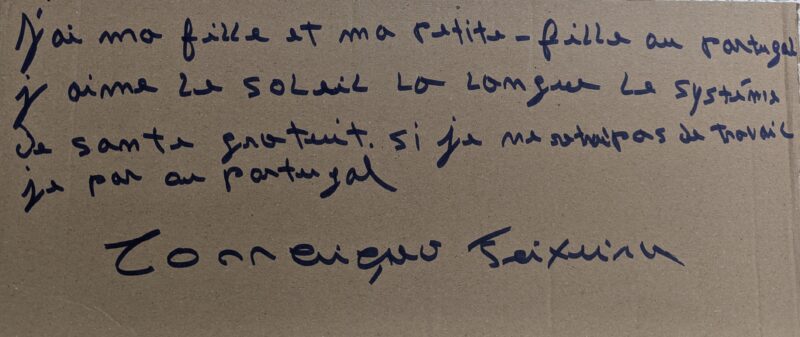 j'ai ma fille et ma petite-fille au portugal
j aime le soleil la langue le système
de sante gratuit. si je ne retraipas de travail
je par au portugal
Teixeira